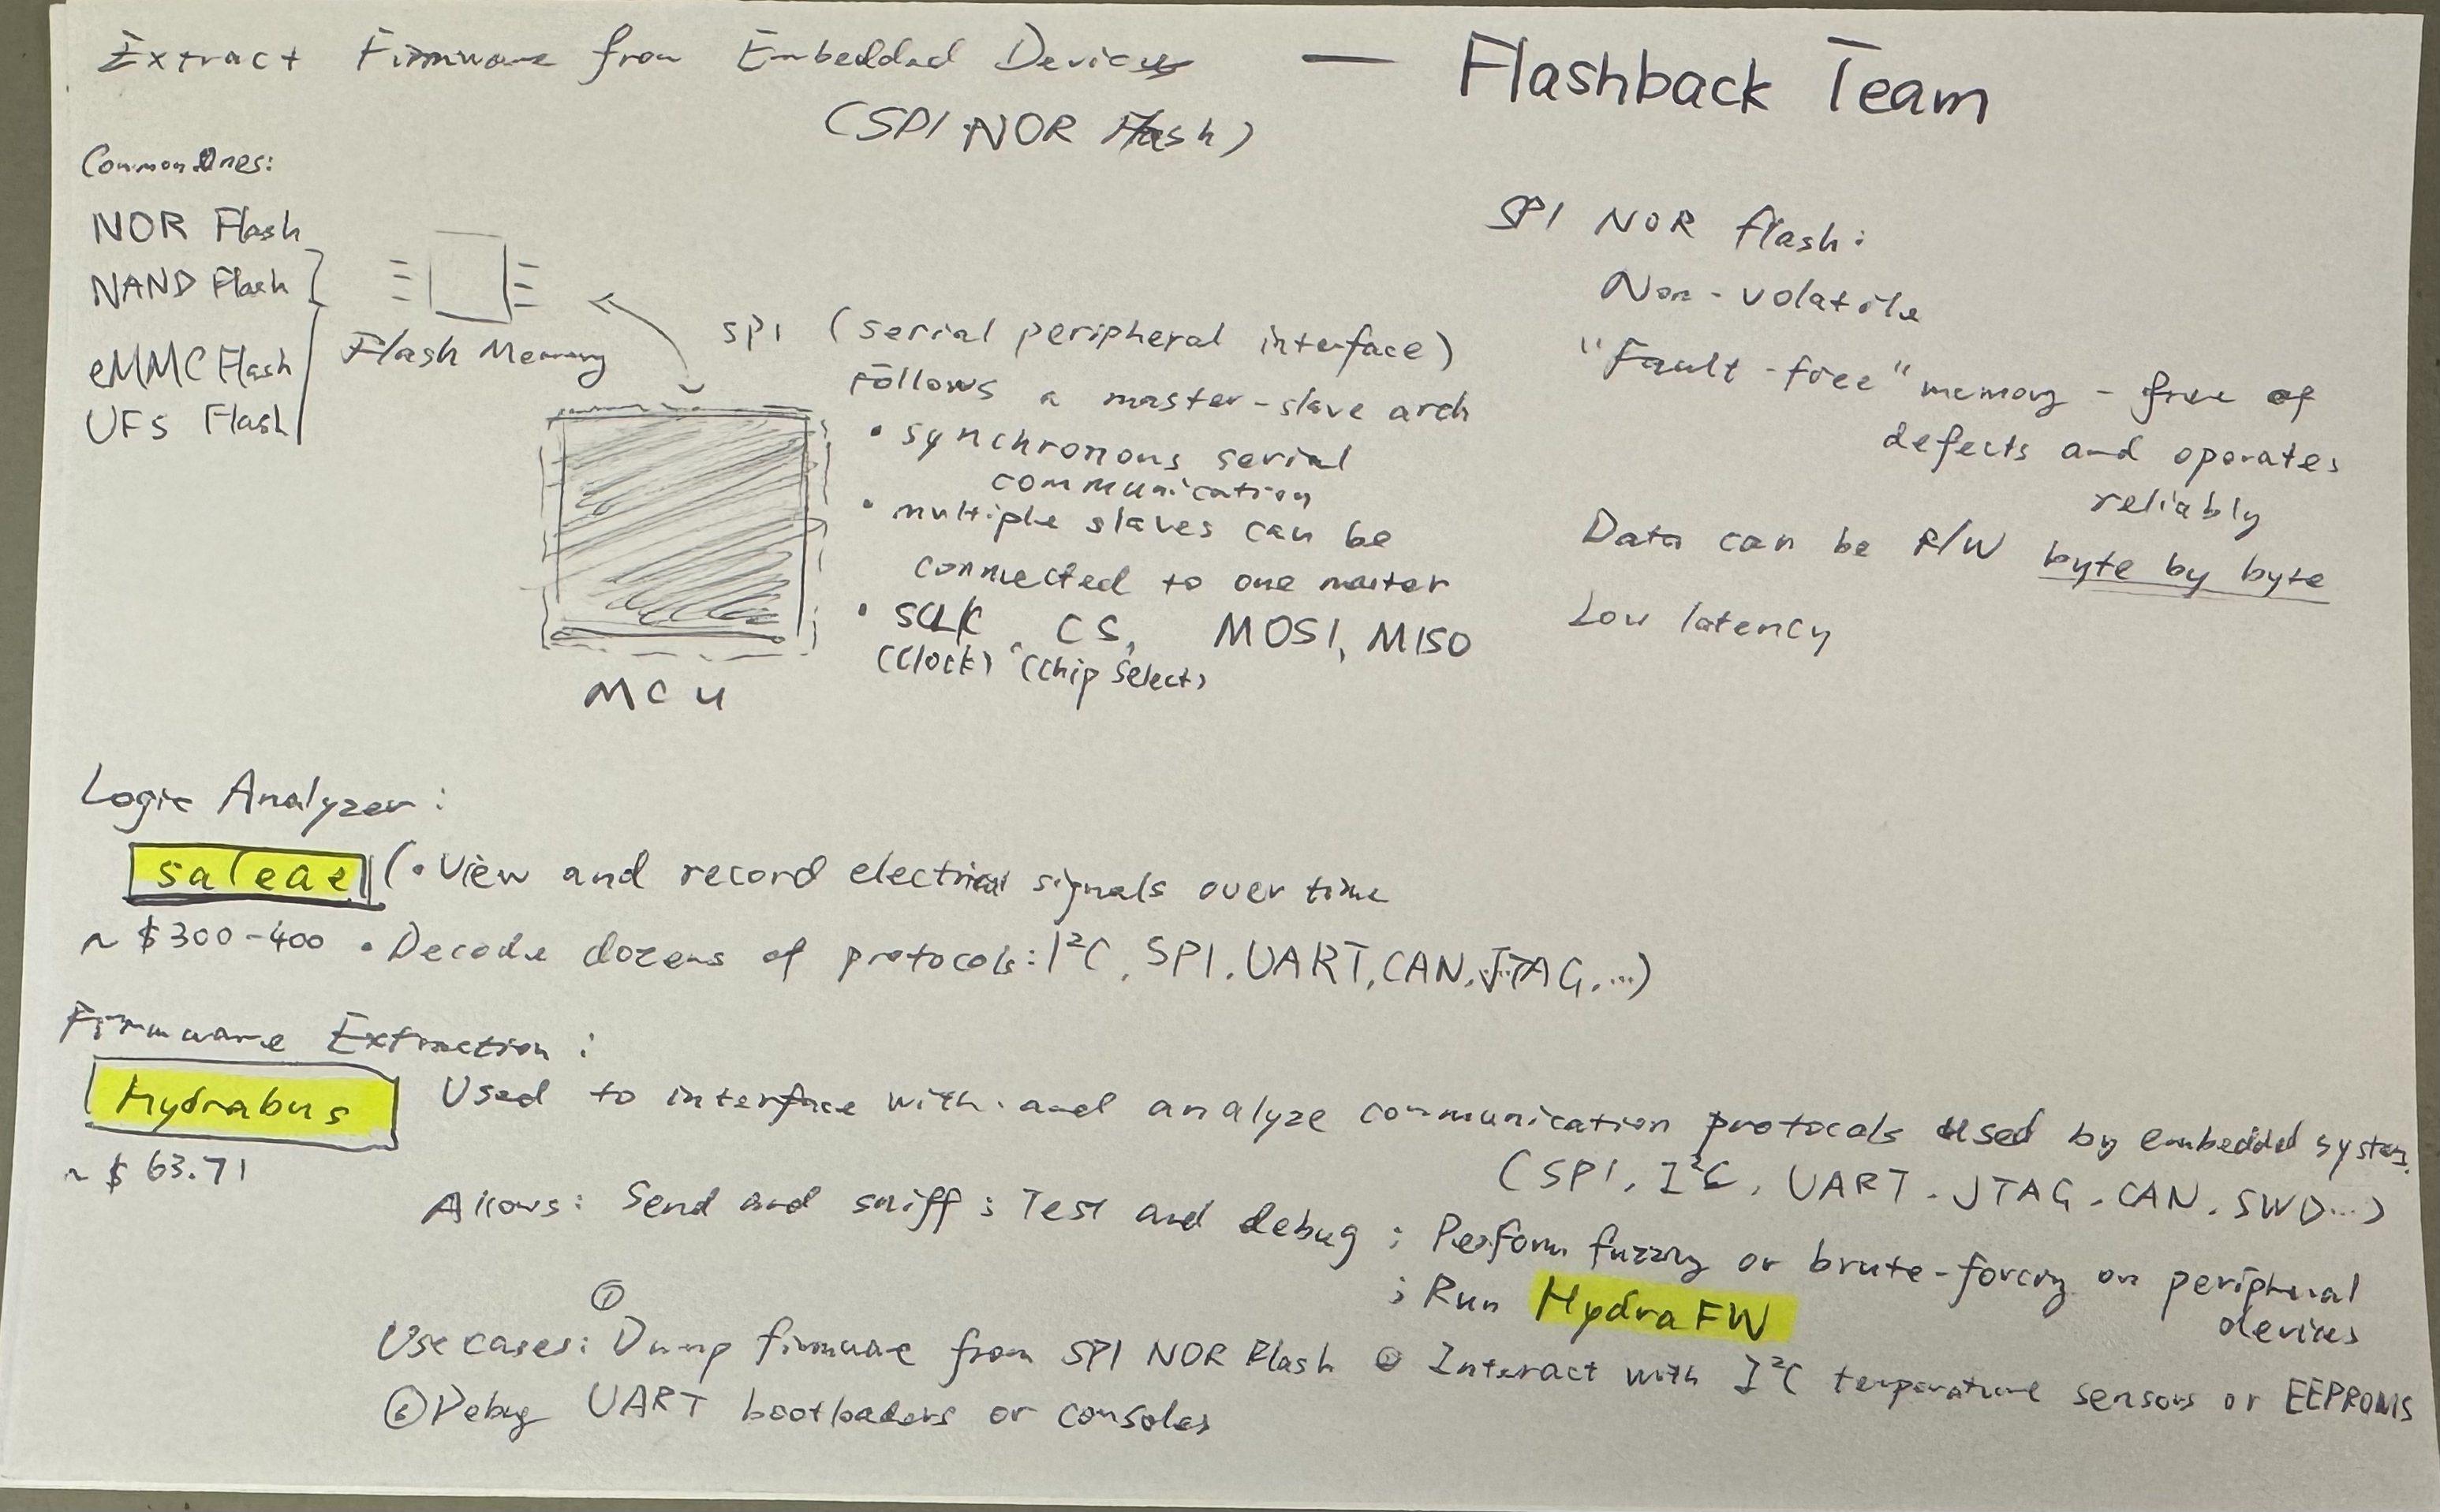 Extract Firmware from Embedded Devices — Flashback Team
(SPI NOR Flash)
Common Ones:
NOR Flash
NAND Flash
eMMC Flash
UFS Flash
Flash Memory
MCU
SPI (serial peripheral interface)
Follows a master-slave arch
• synchronous serial
communication
• multiple slaves can be
connected to one master
• SCLK, CS, MOSI, MISO
(Clock) (Chip Select)
SPI NOR flash:
Non-volatile
"Fault-free" memory - free of
defects and operates
reliably
Data can be R/W byte by byte
Low latency
Logic Analyzer:
saleae (• View and record electrical signals over time
~ $300-400 • Decode dozens of protocols: I²C, SPI, UART, CAN, JTAG, ...)
Firmware Extraction:
Hydrabus Used to interface with and analyze communication protocols used by embedded systems
~ $63.71
(SPI, I²C, UART, JTAG, CAN, SWD...)
Allows: Send and sniff; Test and debug; Perform fuzzing or brute-forcing on peripheral
devices
; Run HydraFW
①
Use cases: Dump firmware from SPI NOR Flash ② Interact with I²C temperature sensors or EEPROMs
Debug UART bootloaders or consoles